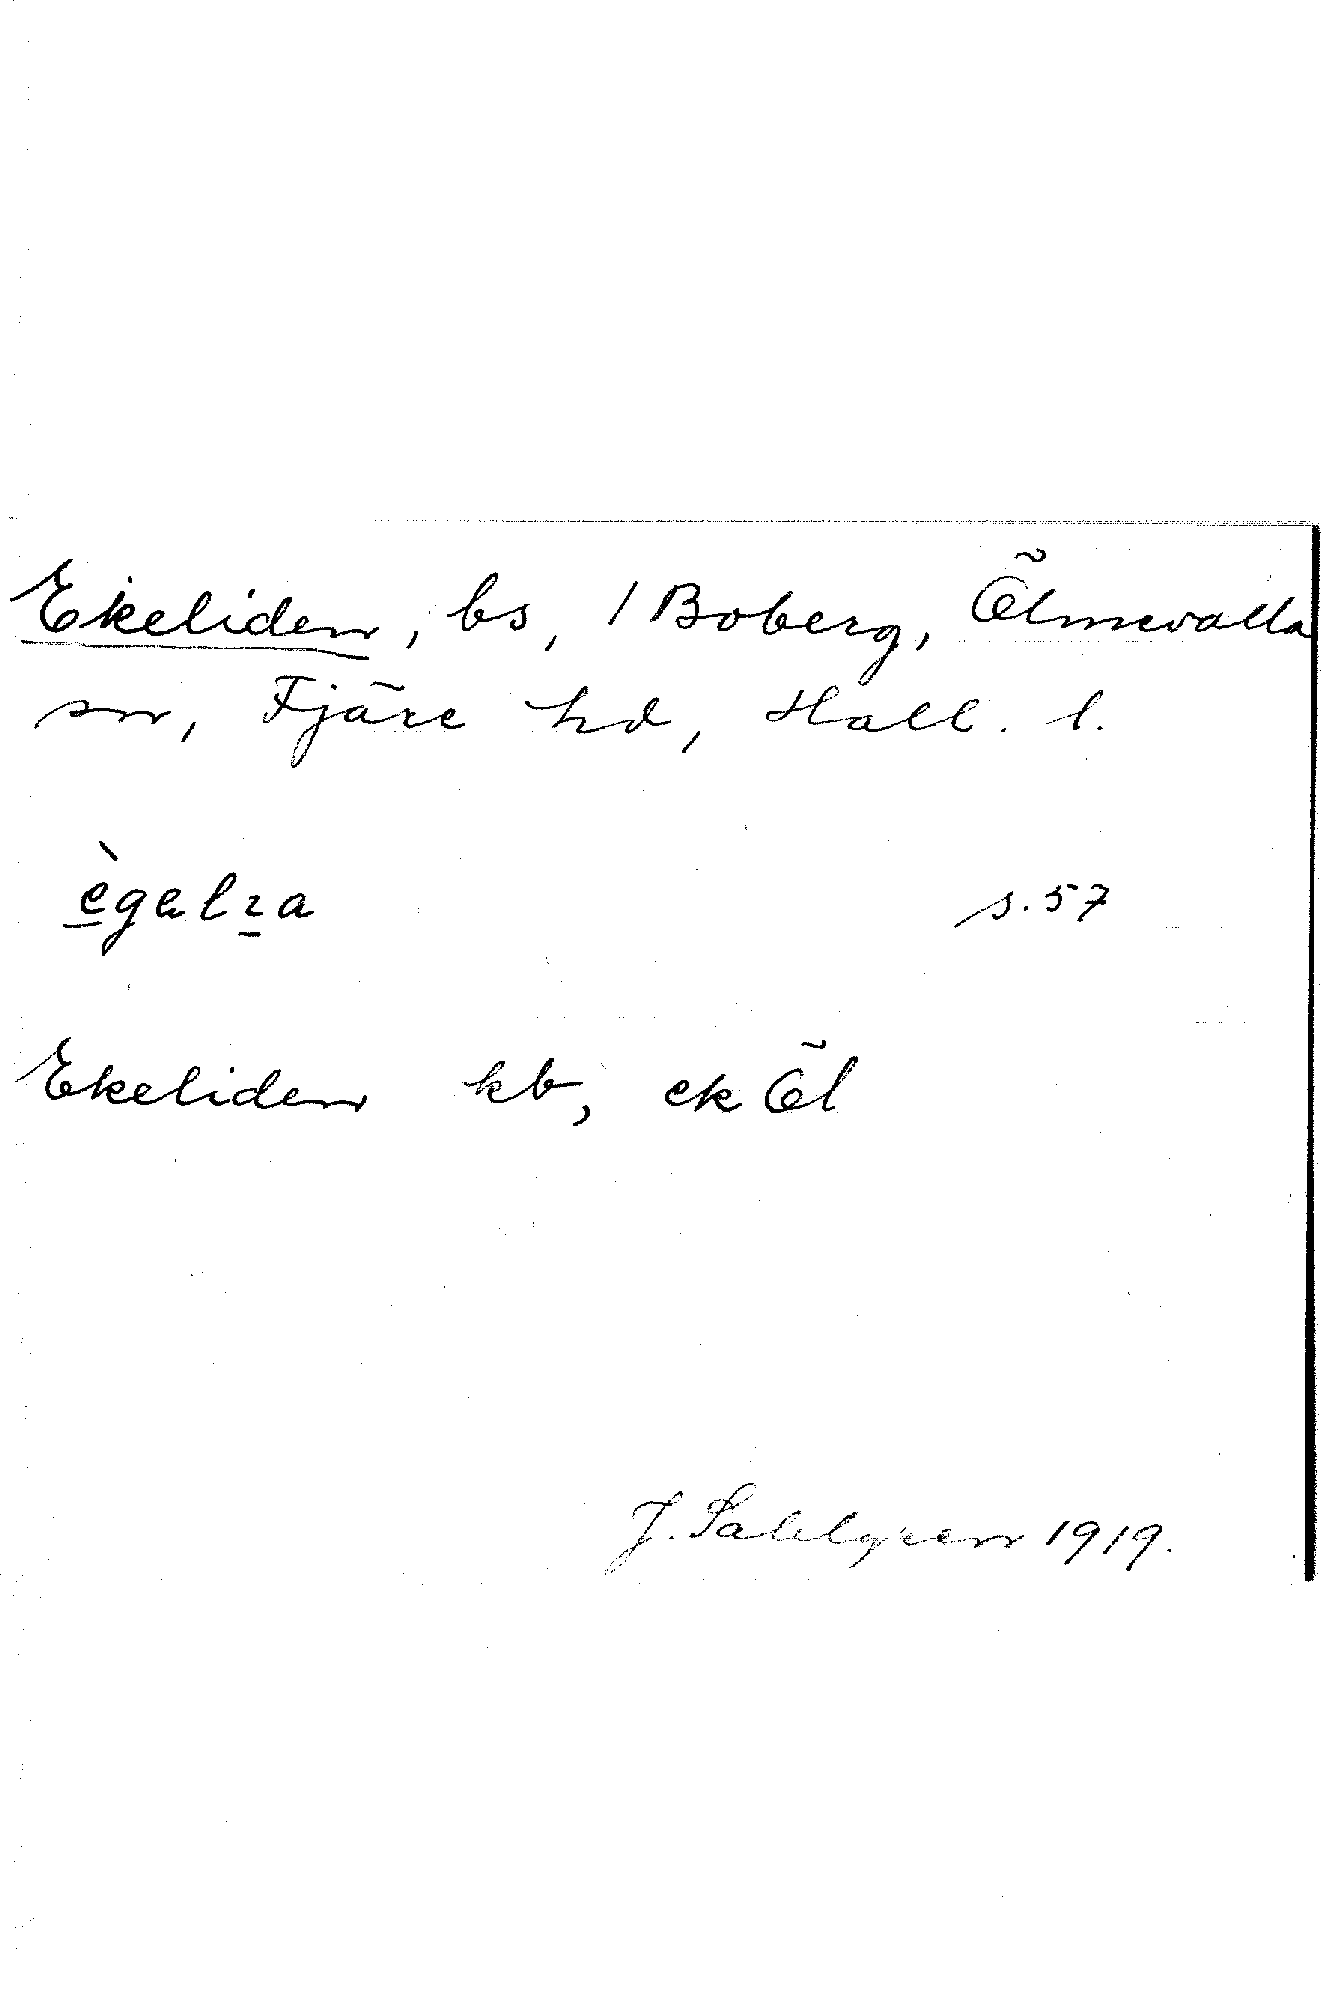 Ekeliden, bs, / Boberg, Ölmevalla
sn, Fjäre hd, Hall. l.
s. 57
Ekeliden kb, ek Öl
J. Sahlgren 1919.